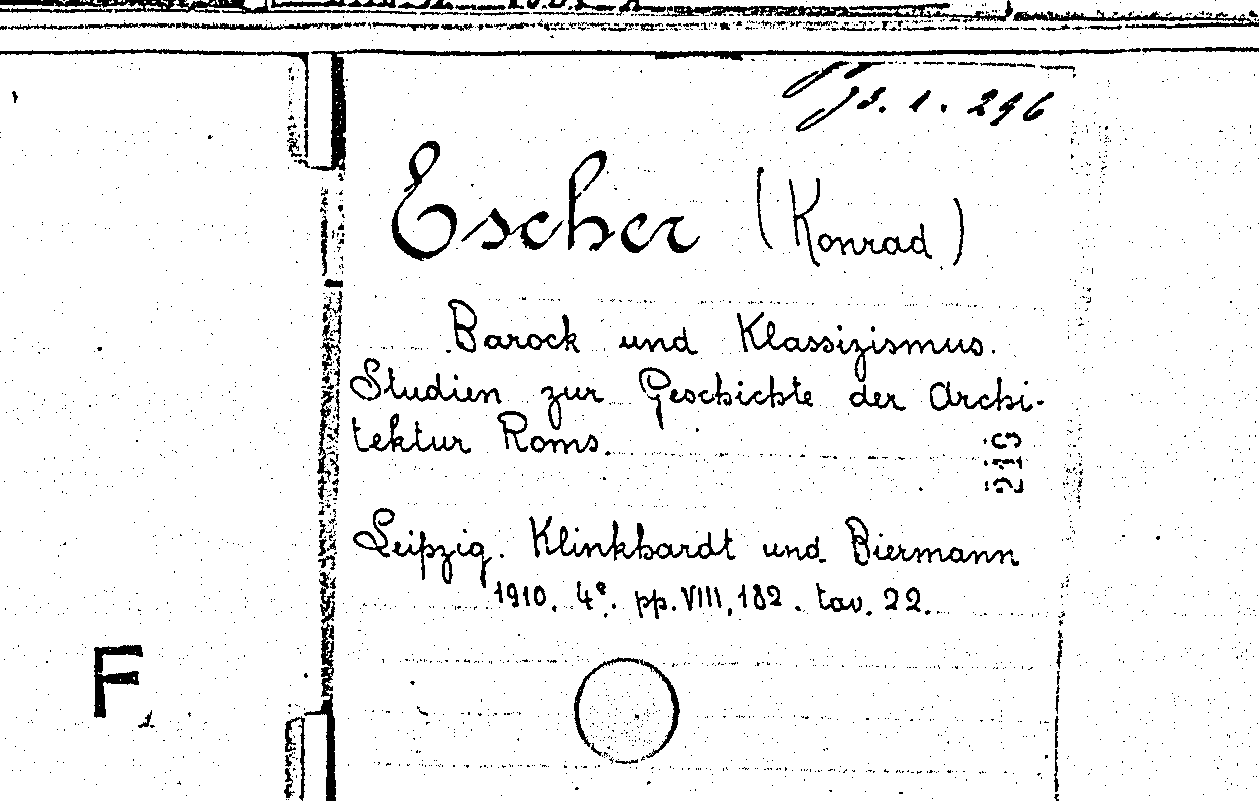 3. 1. 296
Escher (Konrad)
Barock und Klassizismus.
Studien zur Geschichte der Archi-
tektur Roms.
219
Leipzig. Klinkhardt und Biermann
1910. 4°. pp. VIII, 182. tav. 22.
F
1